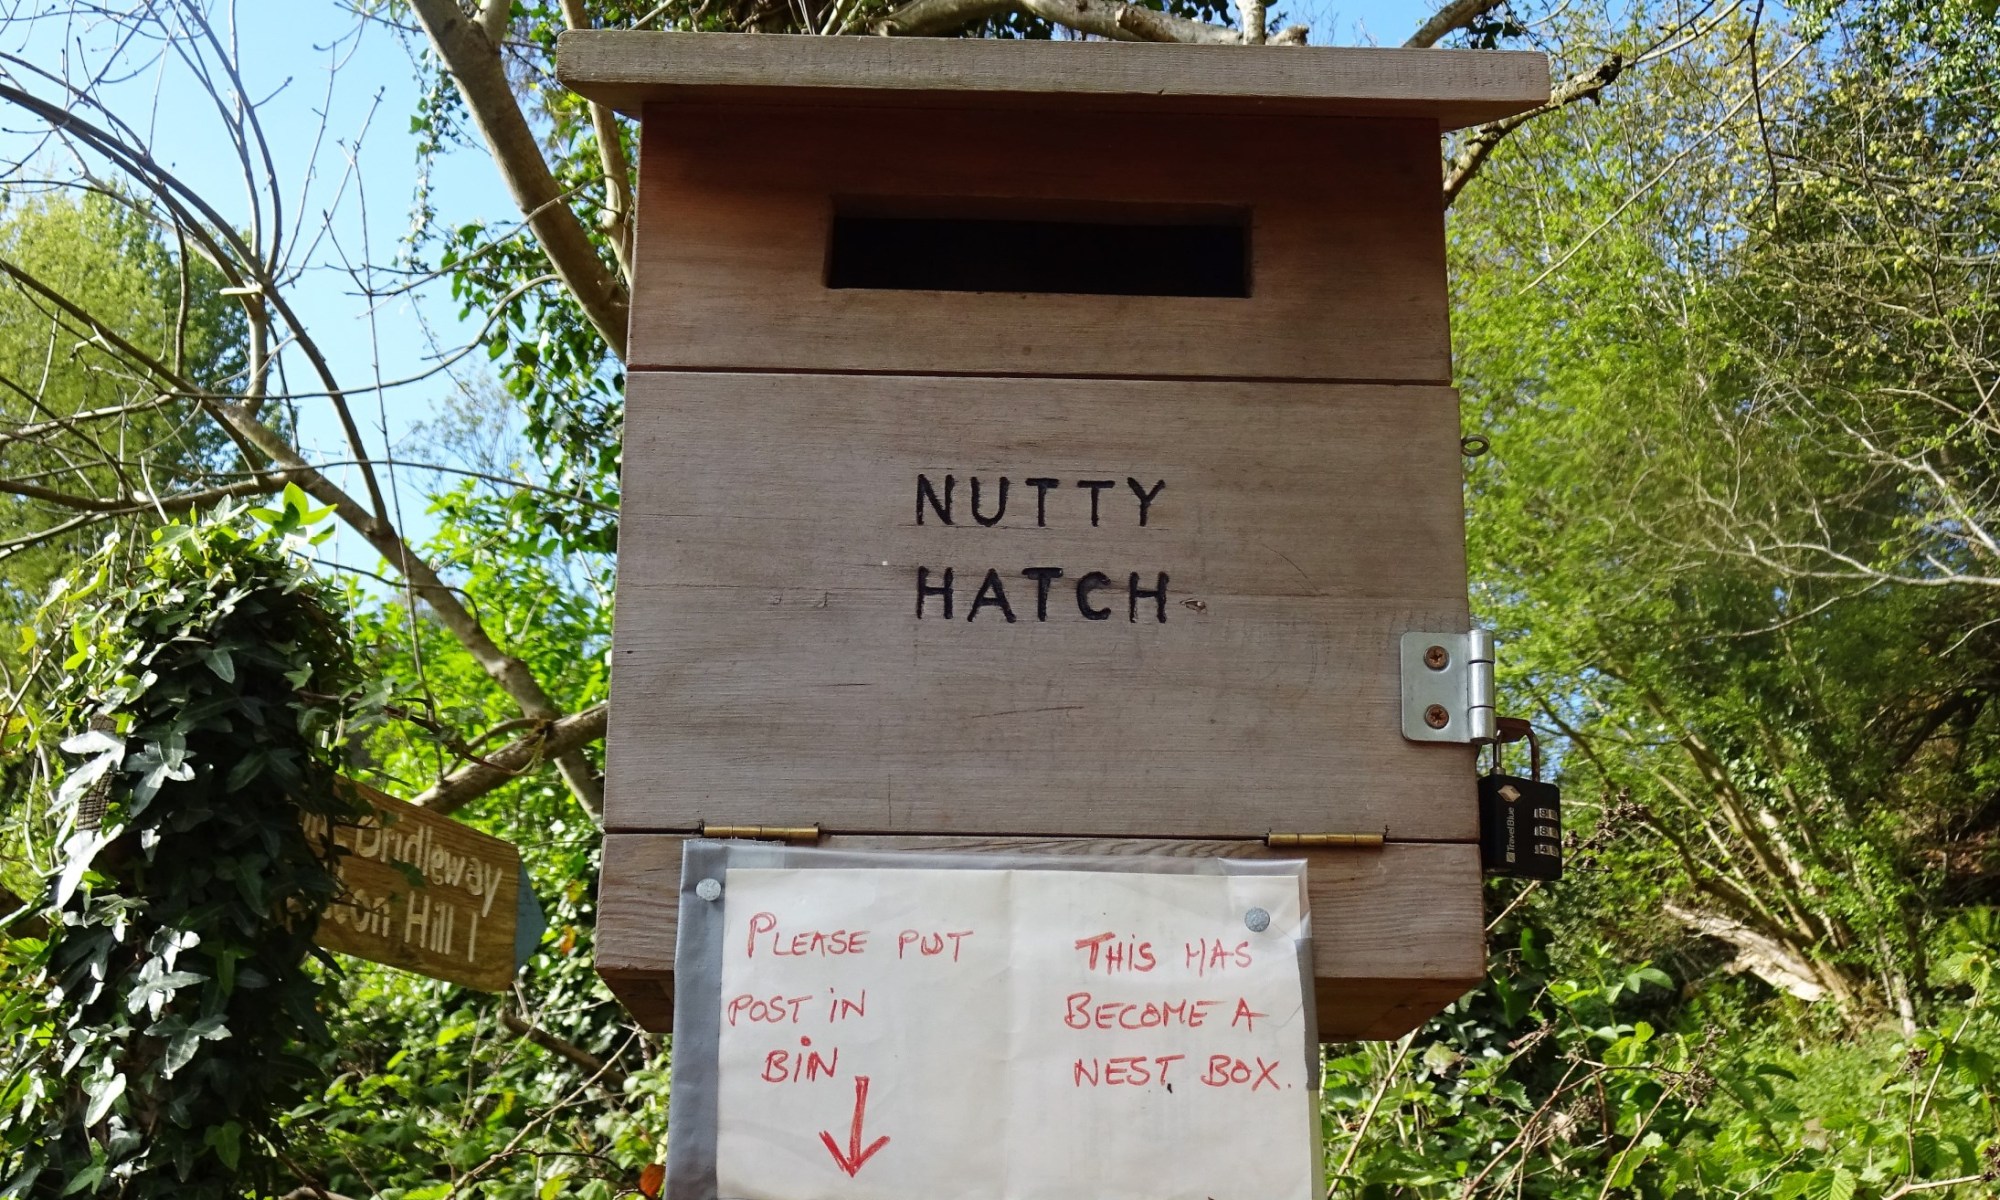 NUTTY
HATCH
Bridleway
Hill 1
TravelBlue
PLEASE PUT
POST iN
BiN
THIS HAS
BECOME A
NEST BOX.